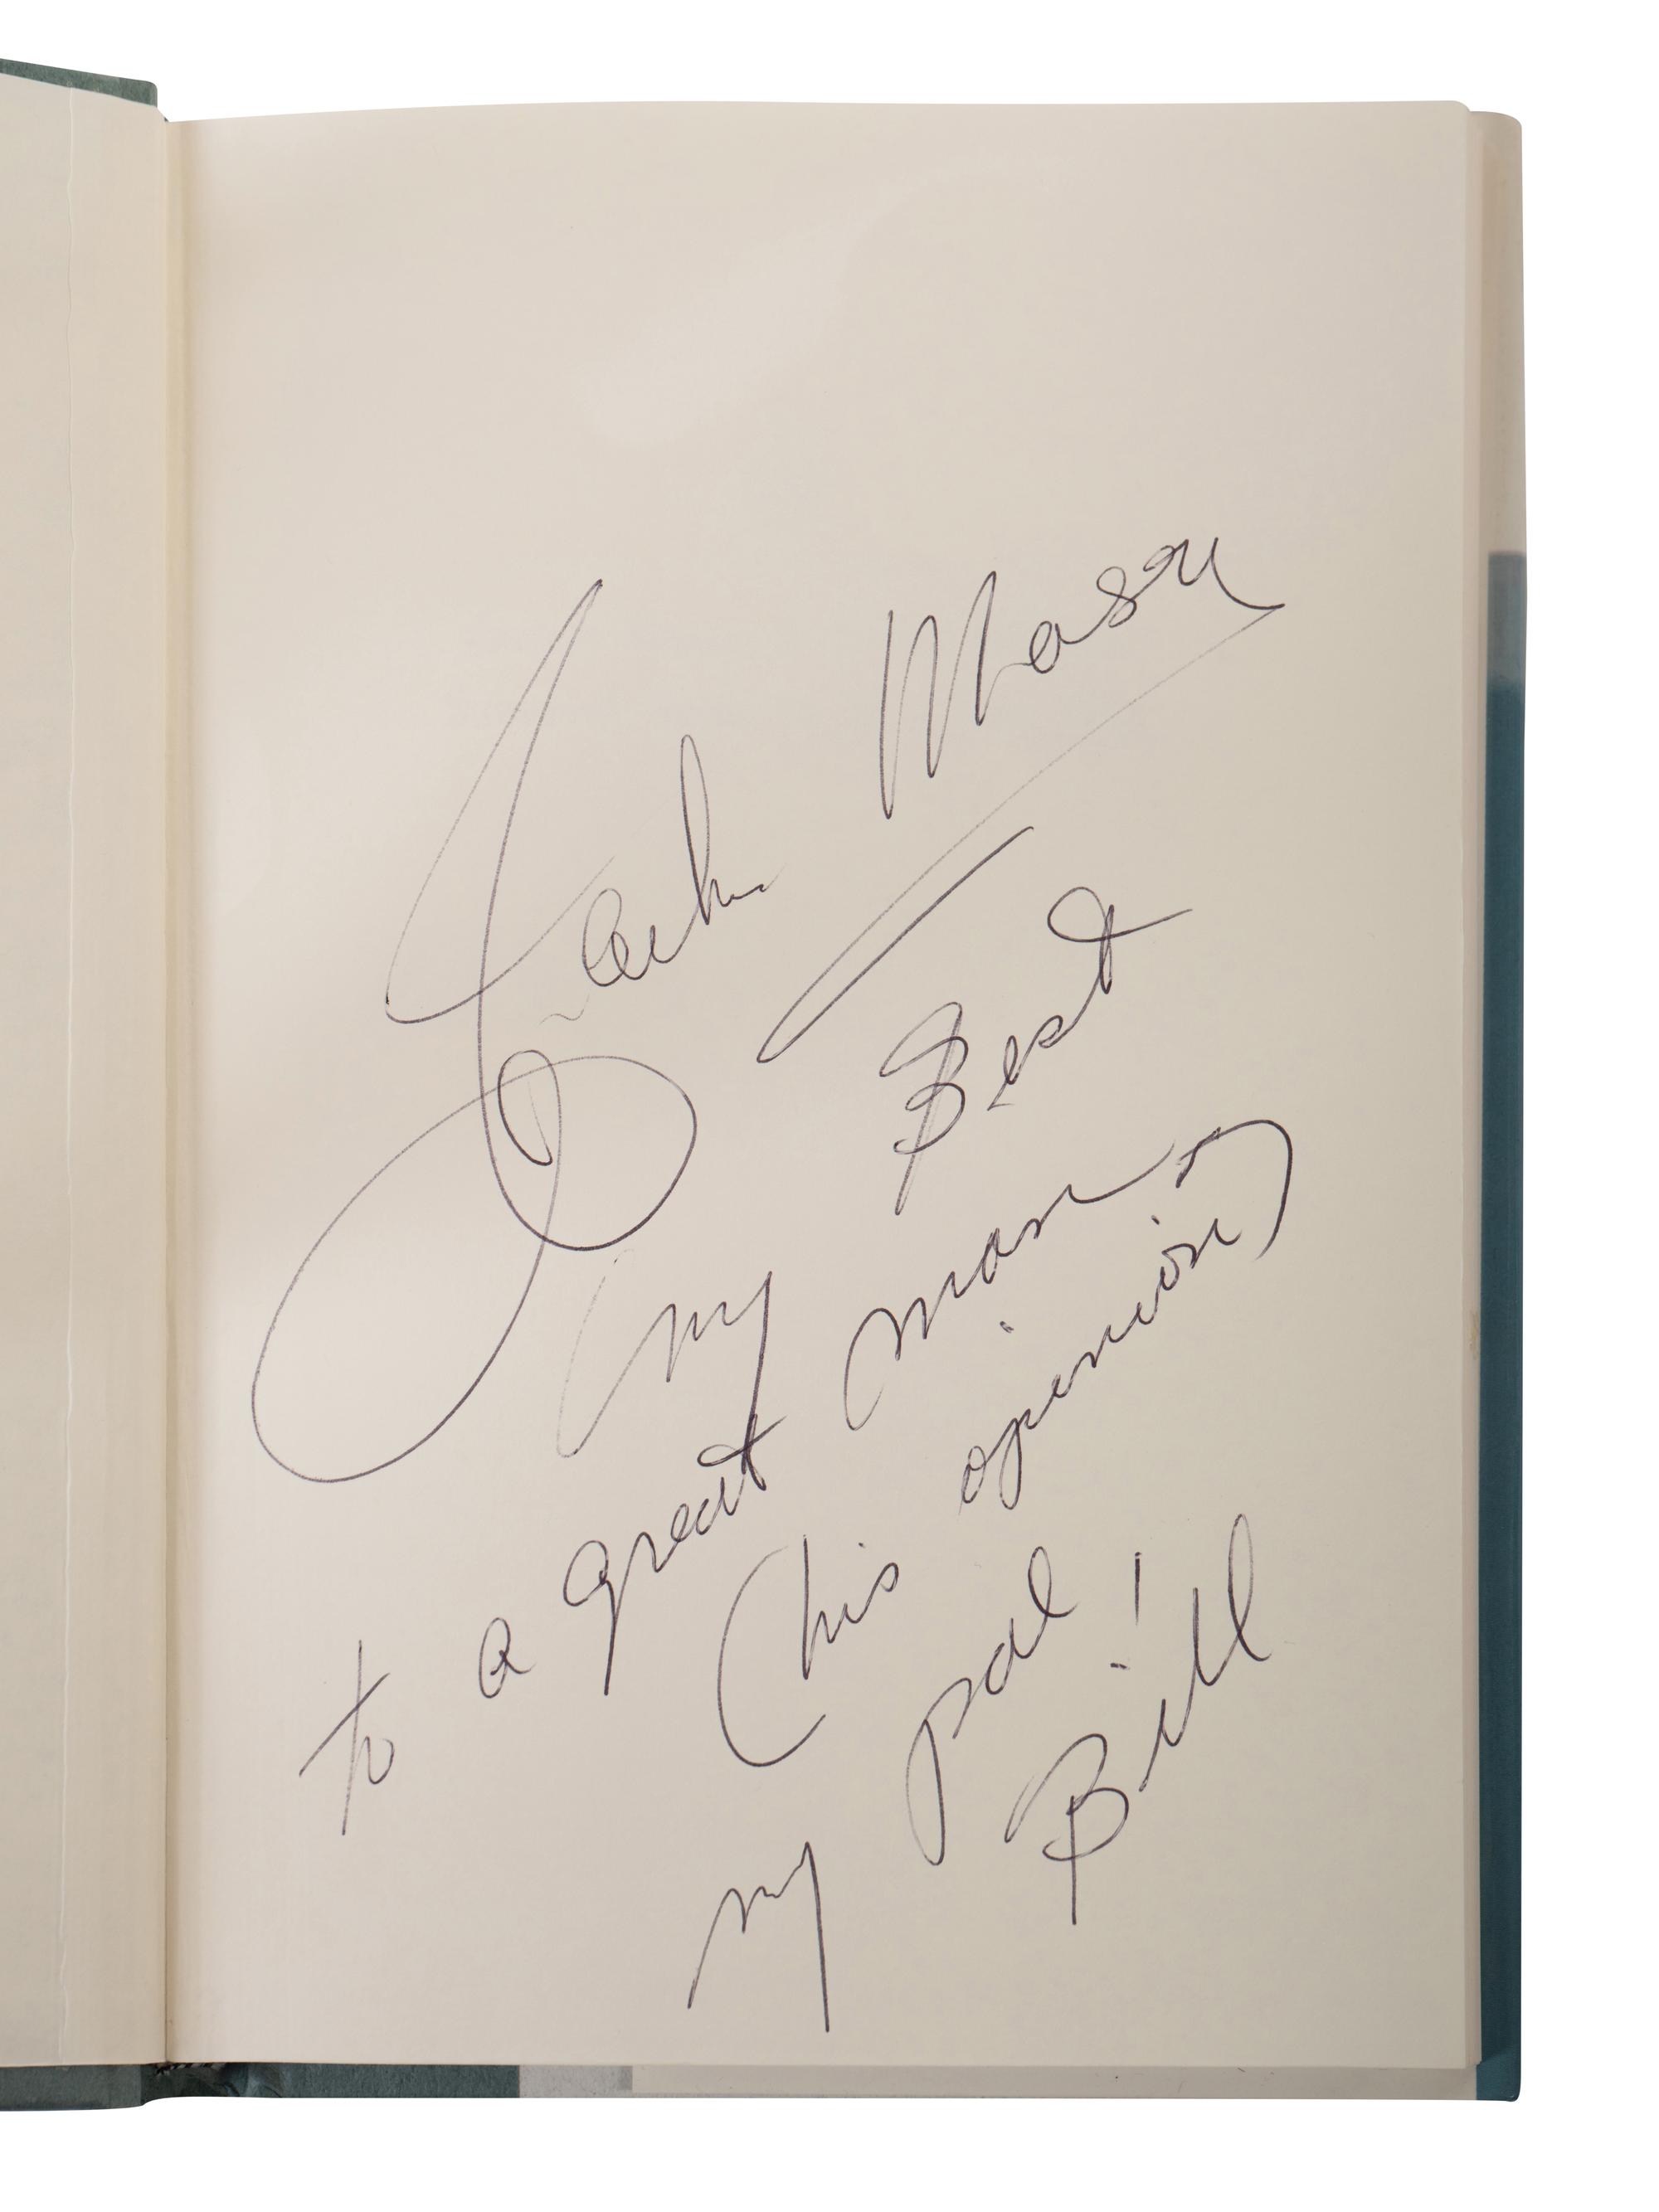 Jackie Mason
My Best
to a great man
(his opinion)
my pal!
Bill